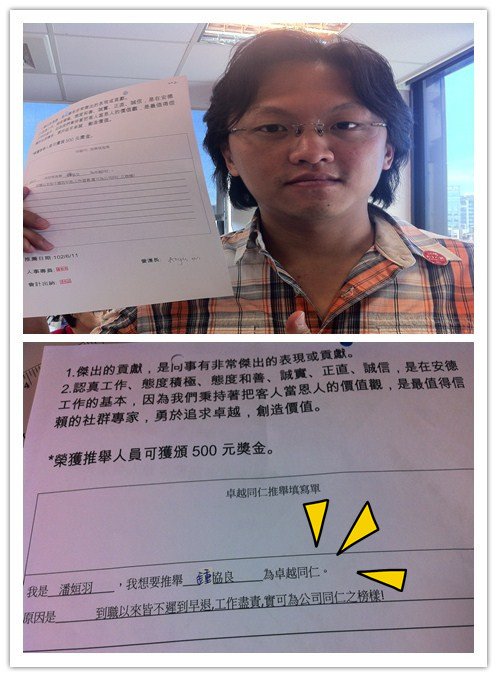 推薦日期:102/6/11
人事專員
會計出納
1.傑出的貢獻，是同事有非常傑出的表現或貢獻。
2.認真工作、態度積極、態度和善、誠實、正直、誠信，是在安德
工作的基本，因為我們秉持著把客人當恩人的價值觀，是最值得信
賴的社群專家，勇於追求卓越，創造價值。
*榮獲推舉人員可獲頒 500 元獎金。
卓越同仁推舉填寫單
我是 潘姮羽 ，我想要推舉 鍾協良 為卓越同仁。
原因是 到職以來皆不遲到早退,工作盡責,實可為公司同仁之榜樣!